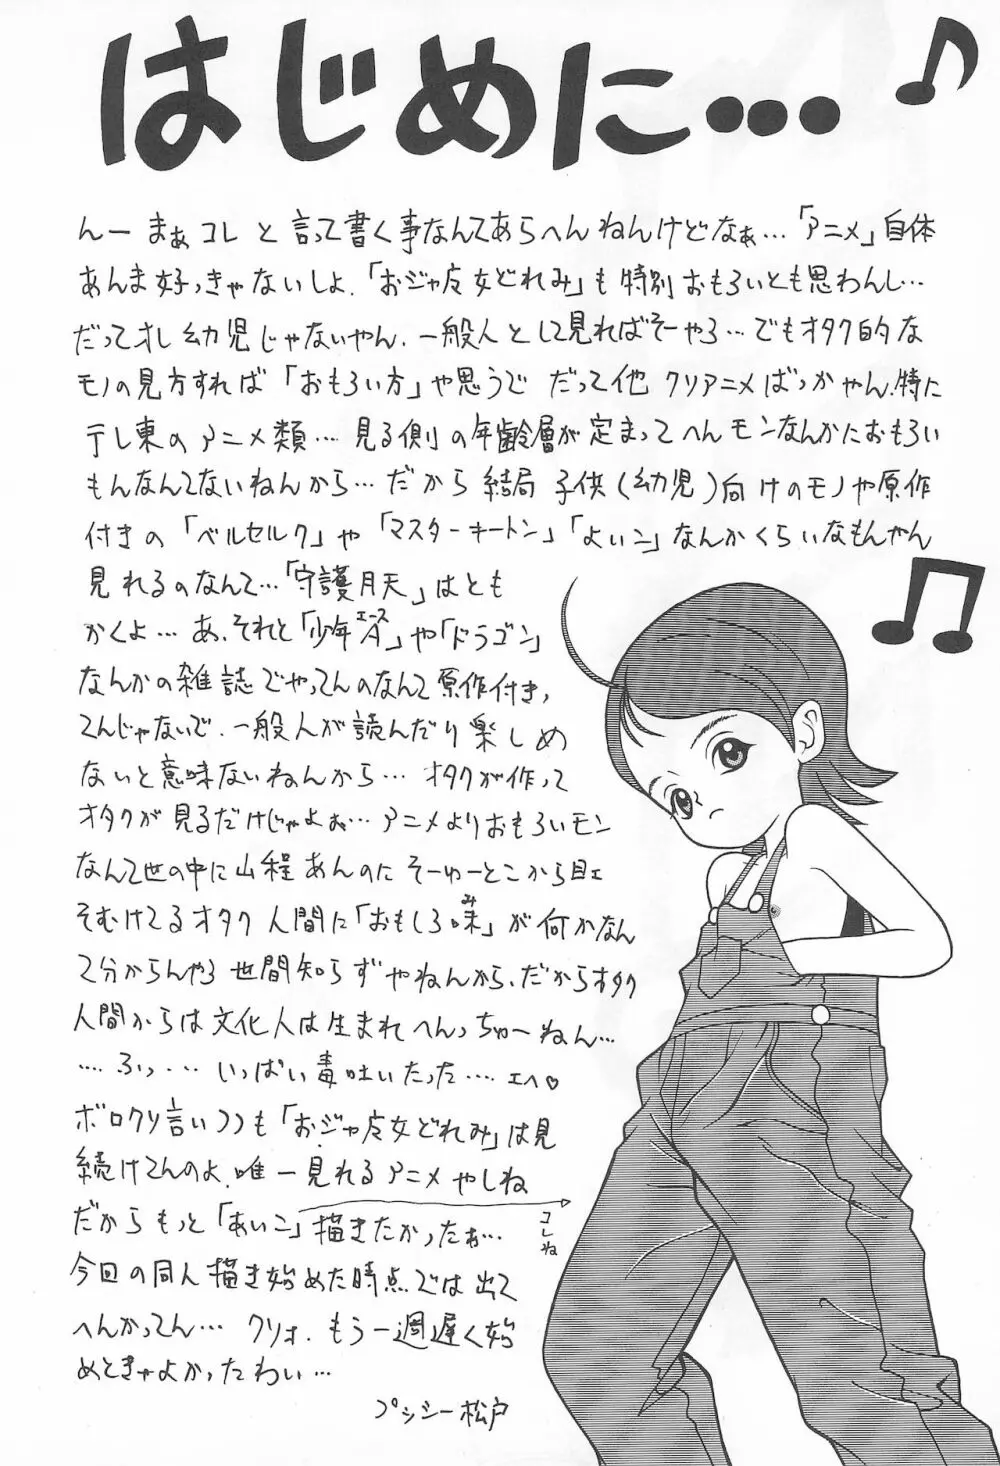 はじめに…
んー まぁ コレ と 言って書く事なんてあらへんねんけどなぁ…「アニメ」自体
あんま好っきゃないしよ.「おジャ魔女どれみ」も 特別 おもろいとも思わんし…
だってオレ 幼児じゃないやん.一般人として見ればそーやろ…でもオタク的な
モノの見方すれば「おもろい方」や思うで だって他 クソアニメばっかやん.特に
テレ東の アニメ類…見る側の年齢層が 定まってへんモンなんかにおもろい
もんなんてないねんから…だから 結局 子供(幼児)向けのモノや原作
付きの「ベルセルク」や「マスターキートン」「よいこ」なんかくらいなもんやん
見れるのなんて…「守護月天」はとも
かくよ…あ、それと「少年エース」や「ドラゴン」
なんかの雑誌でやってんのなんて原作付き,
てんじゃないで.一般人が読んだり楽しめ
ないと意味ないねんから…オタクが作って
オタクが見るだけじゃよぉ…アニメよりおもろいモン
なんて世の中に山程あんのに そーゆーとこから目ェ
そむけてるオタク人間に「おもしろ味」が何かなん
て分からんやろ 世間知らずやねんから、だからオタク
人間からは文化人は生まれへんっちゅーねん…
……ふっ…いっぱい毒吐いたった…エヘ♡
ボロクソ言いつつも「おジャ魔女どれみ」は見
続けてんのよ.唯一見れるアニメやしね
だからもっと「あいこ」描きたかったぉ…
コレね
今回の同人描き始めた時点では出て
へんかってん…クソォ.もう一週遅く始
めときゃよかったわい…
プシシー松戸